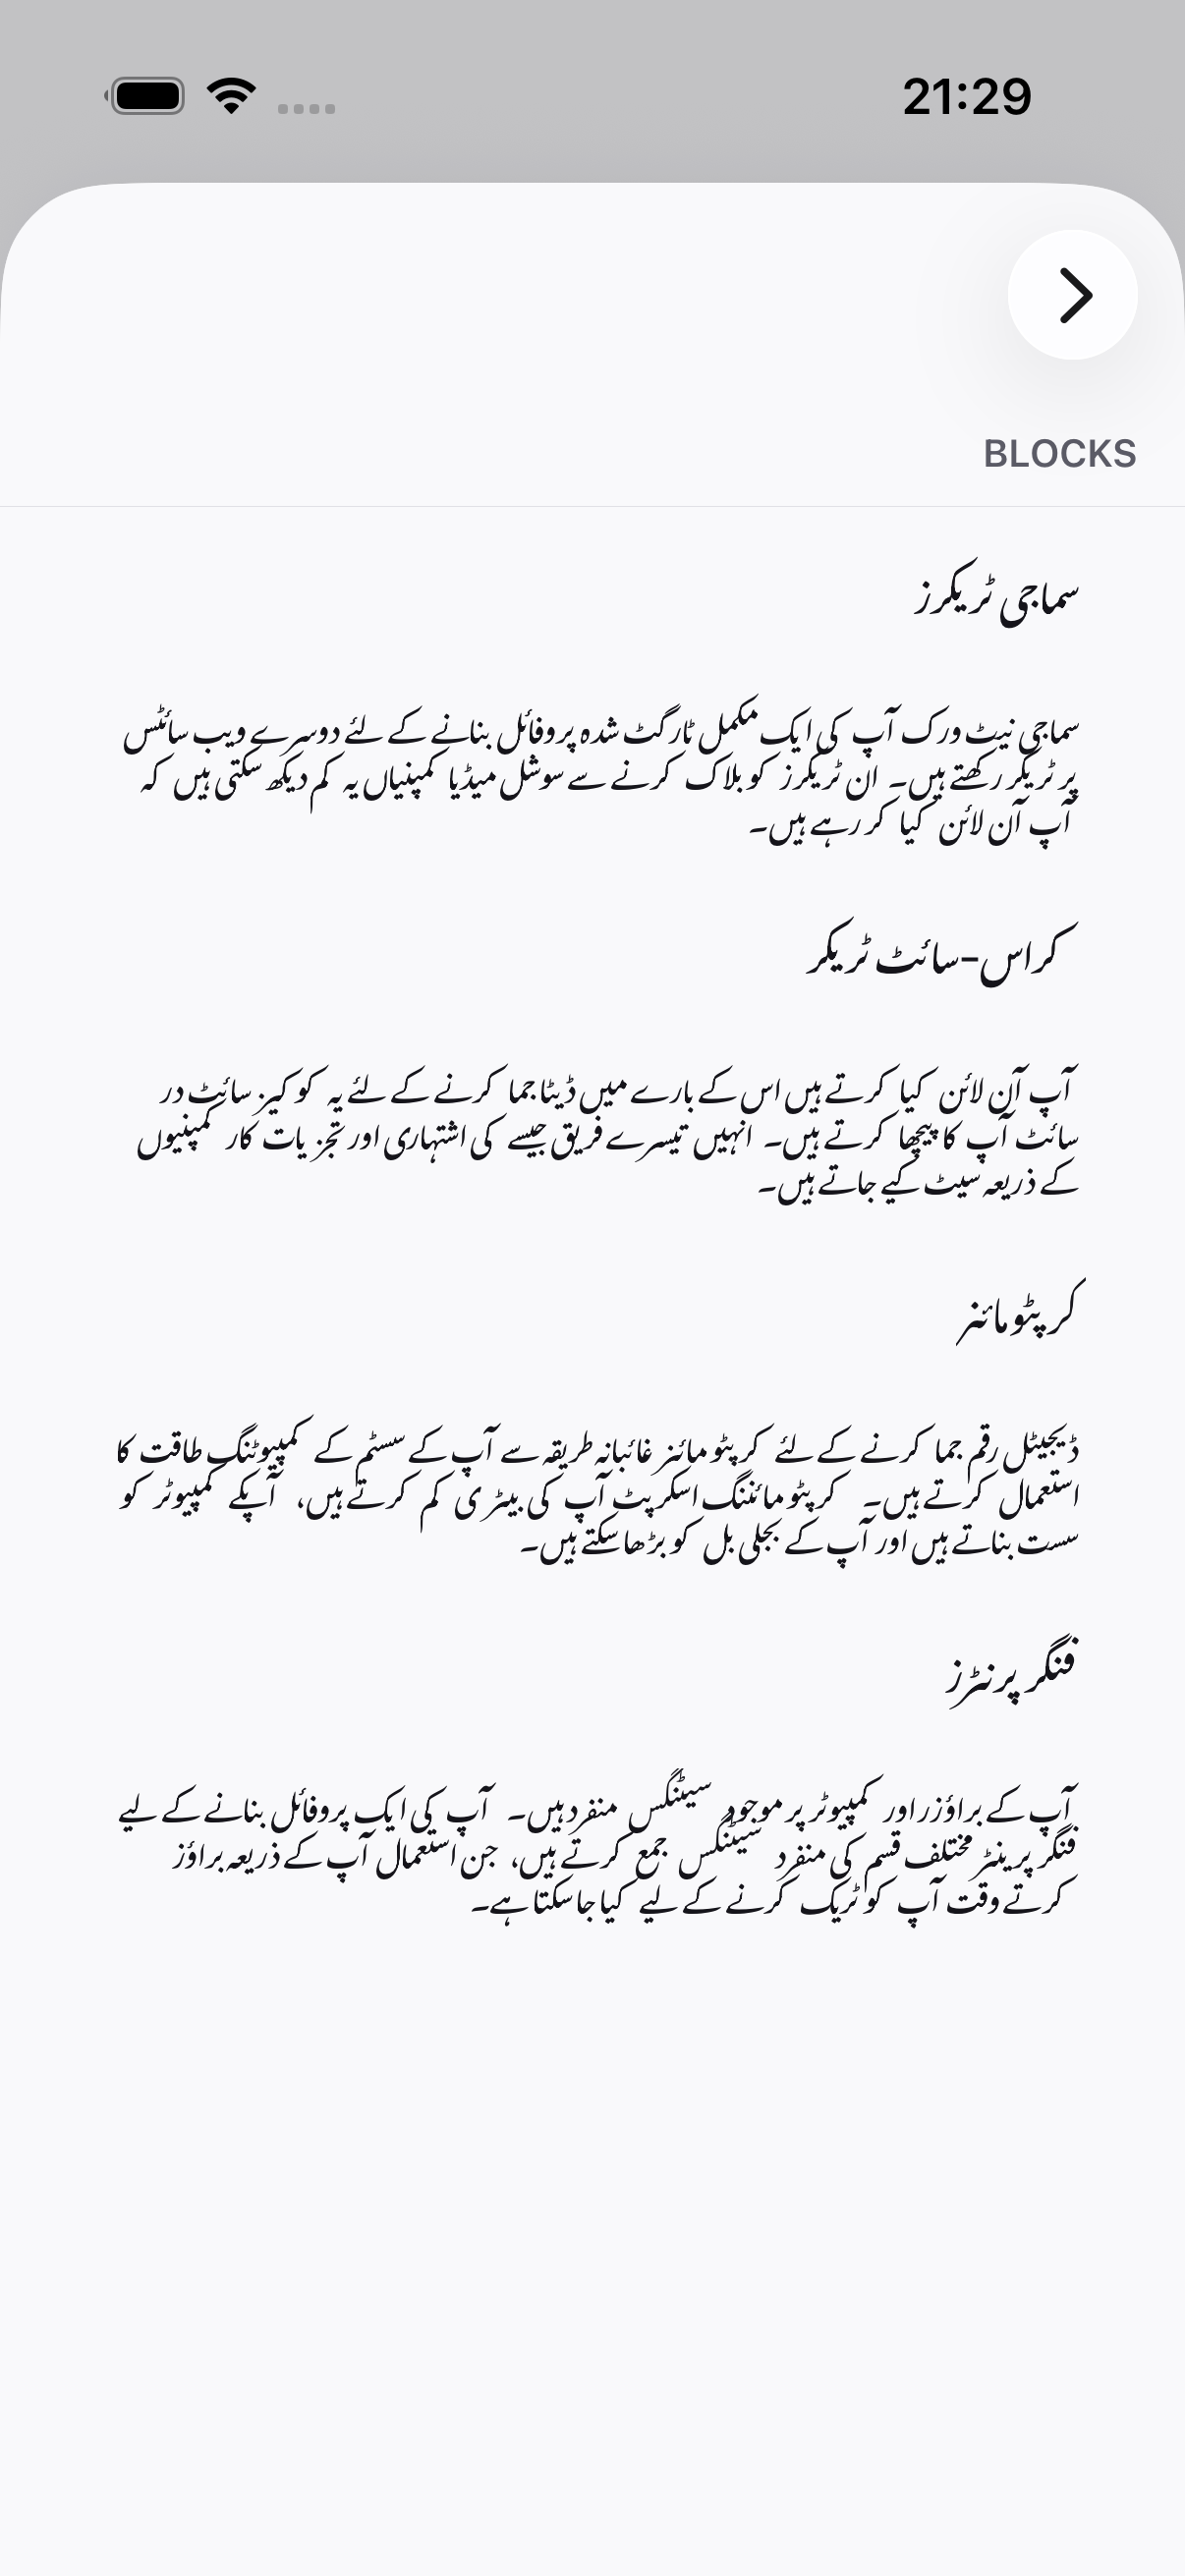 21:29
BLOCKS
سماجی ٹریکرز
سماجی نیٹ ورک آپ کی ایک مکمل ٹارگٹ شدہ پروفائل بنانے کے لئے دوسرے ویب سائٹس
پر ٹریکر رکھتے ہیں۔ ان ٹریکرز کو بلاک کرنے سے سوشل میڈیا کمپنیاں یہ کم دیکھ سکتی ہیں کہ
آپ آن لائن کیا کر رہے ہیں۔
کراس-سائٹ ٹریکر
آپ آن لائن کیا کرتے ہیں اس کے بارے میں ڈیٹا جما کرنے کے لئے یہ کوکیز سائٹ در
سائٹ آپ کا پیچھا کرتے ہیں۔ انہیں تیسرے فریق جیسے کی اشتہاری اور تجزیات کار کمپنیوں
کے ذریعہ سیٹ کیے جاتے ہیں۔
کرپٹومائنر
ڈیجیٹل رقم جما کرنے کے لئے کرپٹومائنر غائبانہ طریقہ سے آپ کے سسٹم کے کمپیوٹنگ طاقت کا
استعمال کرتے ہیں۔ کرپٹومائننگ اسکرپٹ آپ کی بیٹری کم کرتے ہیں، آپکے کمپیوٹر کو
سست بناتے ہیں اور آپ کے بجلی بل کو بڑھا سکتے ہیں۔
فنگر پرنٹرز
آپ کے براؤزر اور کمپیوٹر پر موجود سیٹنگس منفرد ہیں۔ آپ کی ایک پروفائل بنانے کے لیے
فنگر پرینٹر مختلف قسم کی منفرد سیٹنگس جمع کرتے ہیں، جن استعمال آپ کے ذریعہ براؤز
کرتے وقت آپ کو ٹریک کرنے کے لیے کیا جا سکتا ہے۔